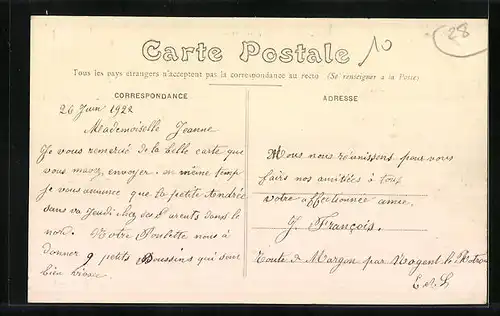 Carte Postale
10
28
Tous les pays étrangers n'acceptent pas la correspondance au recto (Se renseigner à la Poste)
CORRESPONDANCE
26 Juin 1922
Mademoiselle Jeanne
Je vous remercie de la belle carte que
vous mavez envoyer. en même temp
je vous annonce que la petite Andrée
sen va Jeudi chez ses Parents dans le
nord. Notre Poulette nous à
donner 9 petits Poussins qui sont
bien
ADRESSE
Nous nous réunissons pour vous
fairs nos amitiées à tous
votre affectionnée amie.
J. François.
Route de Margon par Nogent le Rotrou
E et L